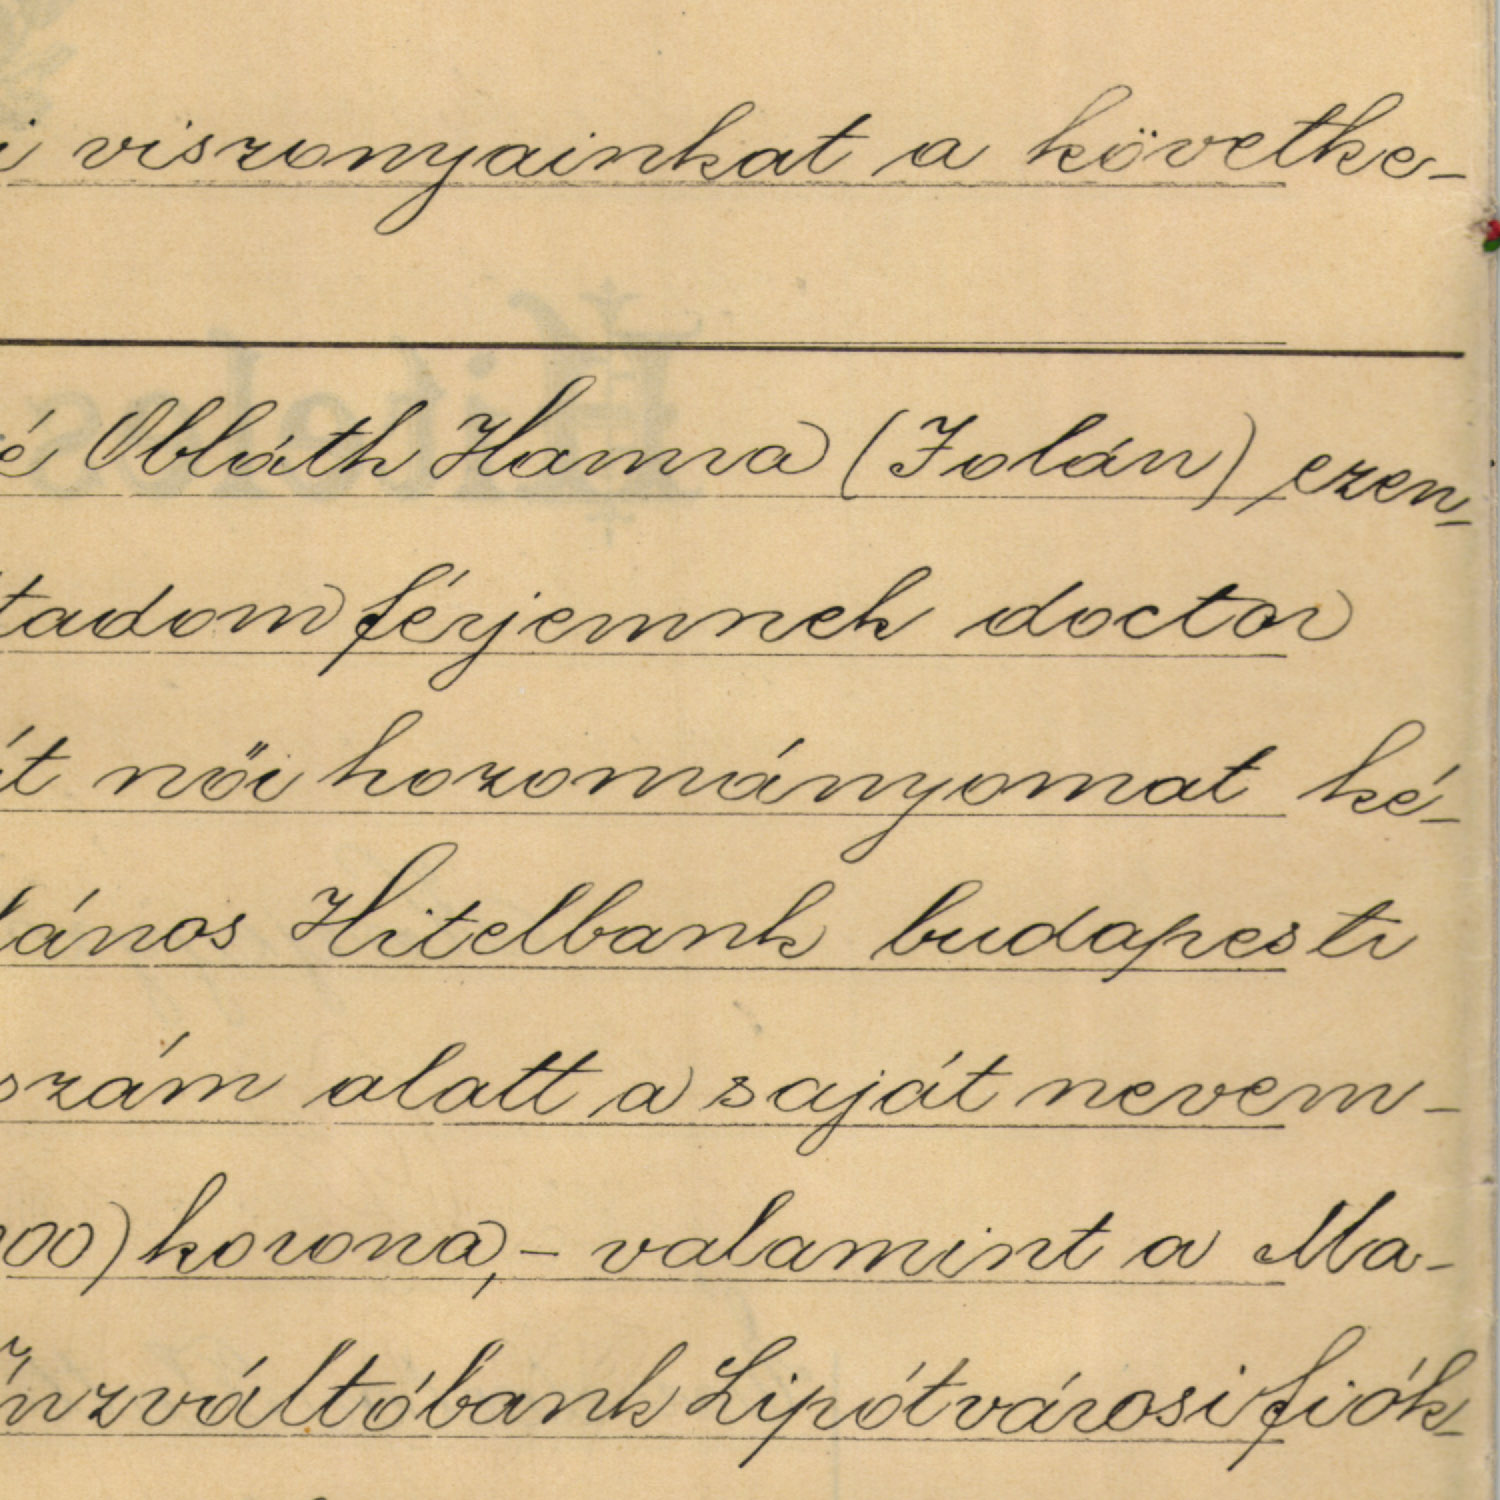 i viszonyainkat a követke-
é Obláth Hanna (Jolán) ezen-
tadom férjemnek doctor
át női hozományomat ké-
lános Hitelbank budapesti
szám alatt a saját nevem-
000) korona, - valamint a Ma-
énzváltóbank Lipótvárosi fiók-